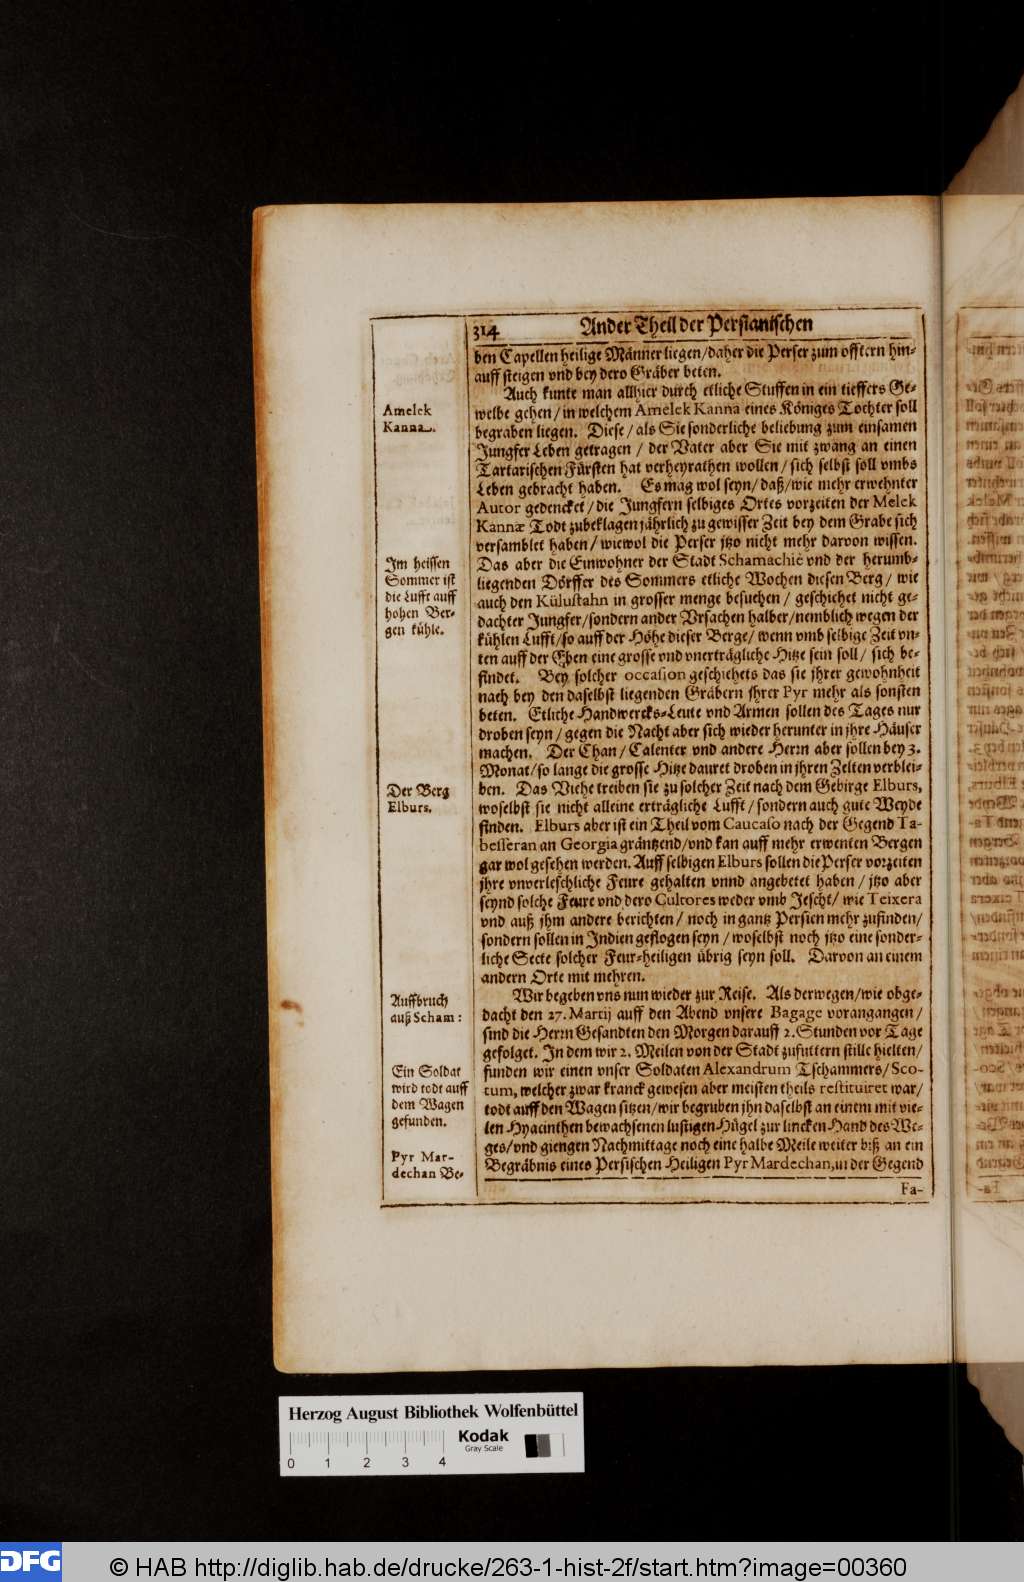 314 Ander Theil der Persianischen
ben Capellen heilige Männer liegen/daher die Perser zum offtern hin-
auff steigen vnd bey dero Gräber beten.
Auch kunte man allhier durch etliche Stuffen in ein tieffers Ge-
welbe gehen/in welchem Amelek Kanna eines Königes Tochter soll
begraben liegen. Diese/als Sie sonderliche beliebung zum einsamen
Jungfer Leben getragen / der Vater aber Sie mit zwang an einen
Tartarischen Fürsten hat verheyrathen wollen / sich selbst soll vmbs
Leben gebracht haben. Es mag wol seyn/daß/wie mehr erwehnter
Autor gedencket/die Jungfern selbiges Ortes vorzeiten der Melek
Kannæ Todt zubeklagen jährlich zu gewisser Zeit bey dem Grabe sich
versamblet haben/wiewol die Perser jtzo nicht mehr darvon wissen.
Das aber die Einwohner der Stadt Schamachiè vnd der herumb-
liegenden Dörffer des Sommers etliche Wochen diesen Berg/ wie
auch den Külustahn in grosser menge besuchen / geschiehet nicht ge-
dachter Jungfer/sondern ander Vrsachen halber/nemblich wegen der
kühlen Lufft/so auff der Höhe dieser Berge/wenn vmb selbige Zeit vn-
ten auff der Eben eine grosse vnd vnerträgliche Hitze sein soll/ sich be-
findet. Bey solcher occasion geschiehets das sie jhrer gewohnheit
nach bey den daselbst liegenden Gräbern jhrer Pyr mehr als sonsten
beten. Etliche Handwercks-Leute vnd Armen sollen des Tages nur
droben seyn/gegen die Nacht aber sich wieder herunter in jhre Häuser
machen. Der Chan/Calenter vnd andere Herrn aber sollen bey 3.
Monat/so lange die grosse Hitze dauret droben in jhren Zelten verblei-
ben. Das Viehe treiben sie zu solcher Zeit nach dem Gebirge Elburs,
woselbst sie nicht alleine erträgliche Lufft/sondern auch gute Weyde
finden. Elburs aber ist ein Theil vom Caucaso nach der Gegend Ta-
besseran an Georgia gräntzend/vnd kan auff mehr erwenten Bergen
gar wol gesehen werden. Auff selbigen Elburs sollen die Perser vorzeiten
jhre vnverleschliche Feure gehalten vnnd angebetet haben/jtzo aber
seynd solche Feure vnd dero Cultores weder vmb Jescht/wie Teixera
vnd auß jhm andere berichten/ noch in gantz Persien mehr zufinden/
sondern sollen in Indien geflogen seyn / woselbst noch jtzo eine sonder-
liche Secte solcher Feur-heiligen übrig seyn soll. Darvon an einem
andern Orte mit mehren.
Wir begeben vns nun wieder zur Reise. Als derwegen/wie obge-
dacht den 27. Martij auff den Abend vnsere Bagage vorangangen/
sind die Herrn Gesandten den Morgen darauff 2. Stunden vor Tage
gefolget. In dem wir 2. Meilen von der Stadt zufuttern stille hielten/
funden wir einen vnser Soldaten Alexandrum Tschammers/Sco-
tum, welcher zwar kranck gewesen aber meisten theils restituiret war/
todt auff den Wagen sitzen/wir begruben jhn daselbst an einem mit vie-
len Hyacinthen bewachsenen lustigen Hügel zur lincken Hand des We-
ges/vnd giengen Nachmittage noch eine halbe Meile weiter biß an ein
Begräbnis eines Persischen Heiligen Pyr Mardechan, in der Gegend
Fa-
Amelek
Kanna.
Im heissen
Sommer ist
die Lufft auff
hohen Ber-
gen kühle.
Der Berg
Elburs.
Auffbruch
auß Scham:
Ein Soldat
wird todt auff
dem Wagen
gefunden.
Pyr Mar-
dechan Be-
Herzog August Bibliothek Wolfenbüttel
Kodak
Gray Scale
0 1 2 3 4
DFG
© HAB http://diglib.hab.de/drucke/263-1-hist-2f/start.htm?image=00360